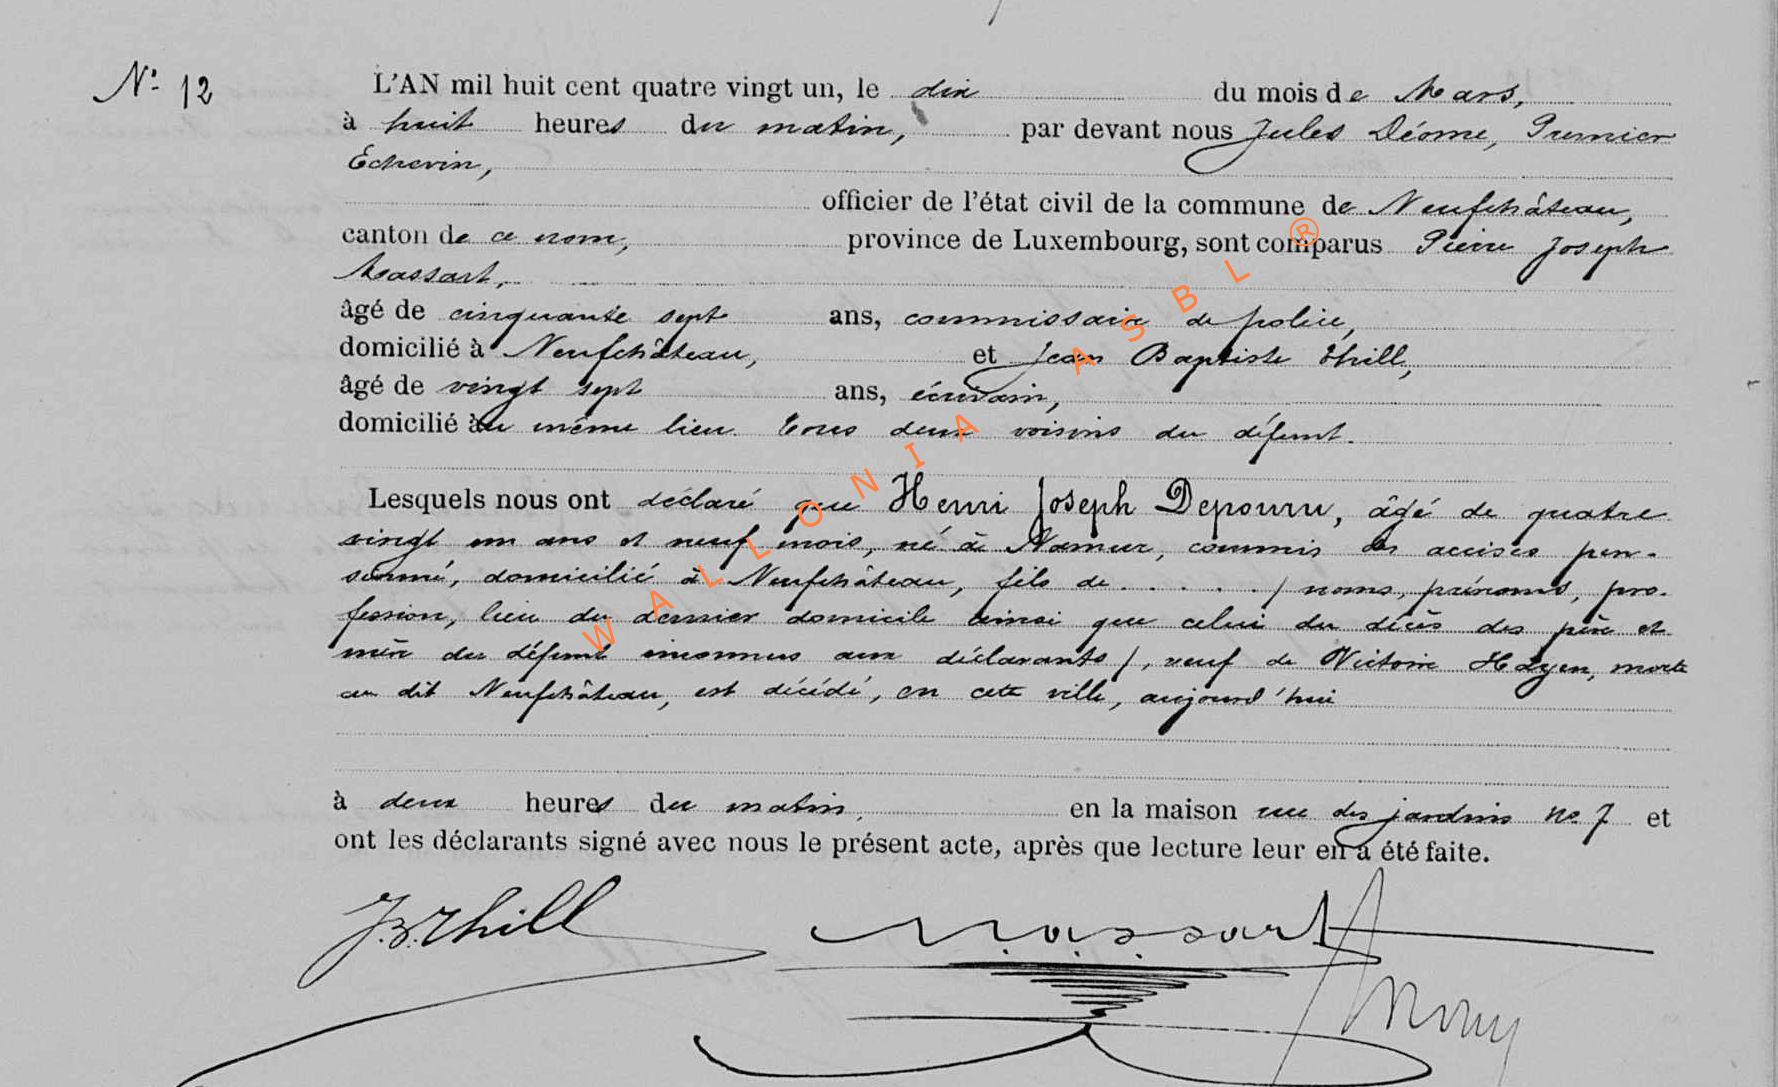 N° 12
L'AN mil huit cent quatre vingt un, le dix du mois de Mars,
à huit heures du matin, par devant nous Jules Déome, Premier
Echevin,
officier de l'état civil de la commune de Neufchâteau,
canton de ce nom, province de Luxembourg, sont comparus Pierre Joseph
Massart,
âgé de cinquante sept ans, commissaire de police,
domicilié à Neufchâteau, et Jean Baptiste Thill,
âgé de vingt sept ans, écrivain,
domicilié au même lieu. Tous deux voisins du défunt.
Lesquels nous ont déclaré que Henri Joseph Depouru, âgé de quatre
vingt un ans et neuf mois, né à Namur, commis des accises pen-
sionné, domicilié à Neufchâteau, fils de . . . . . / noms, prénoms, pro-
fession, lieu du dernier domicile ainsi que celui du décès des père et
mère du défunt inconnus aux déclarants /, veuf de Victoire Hayen, morte
au dit Neufchâteau, est décédé, en cette ville, aujourd'hui
à deux heures du matin, en la maison rue des jardins no 7 et
ont les déclarants signé avec nous le présent acte, après que lecture leur en a été faite.
J.B. Thill Massart
WALLONIA ASBL ®